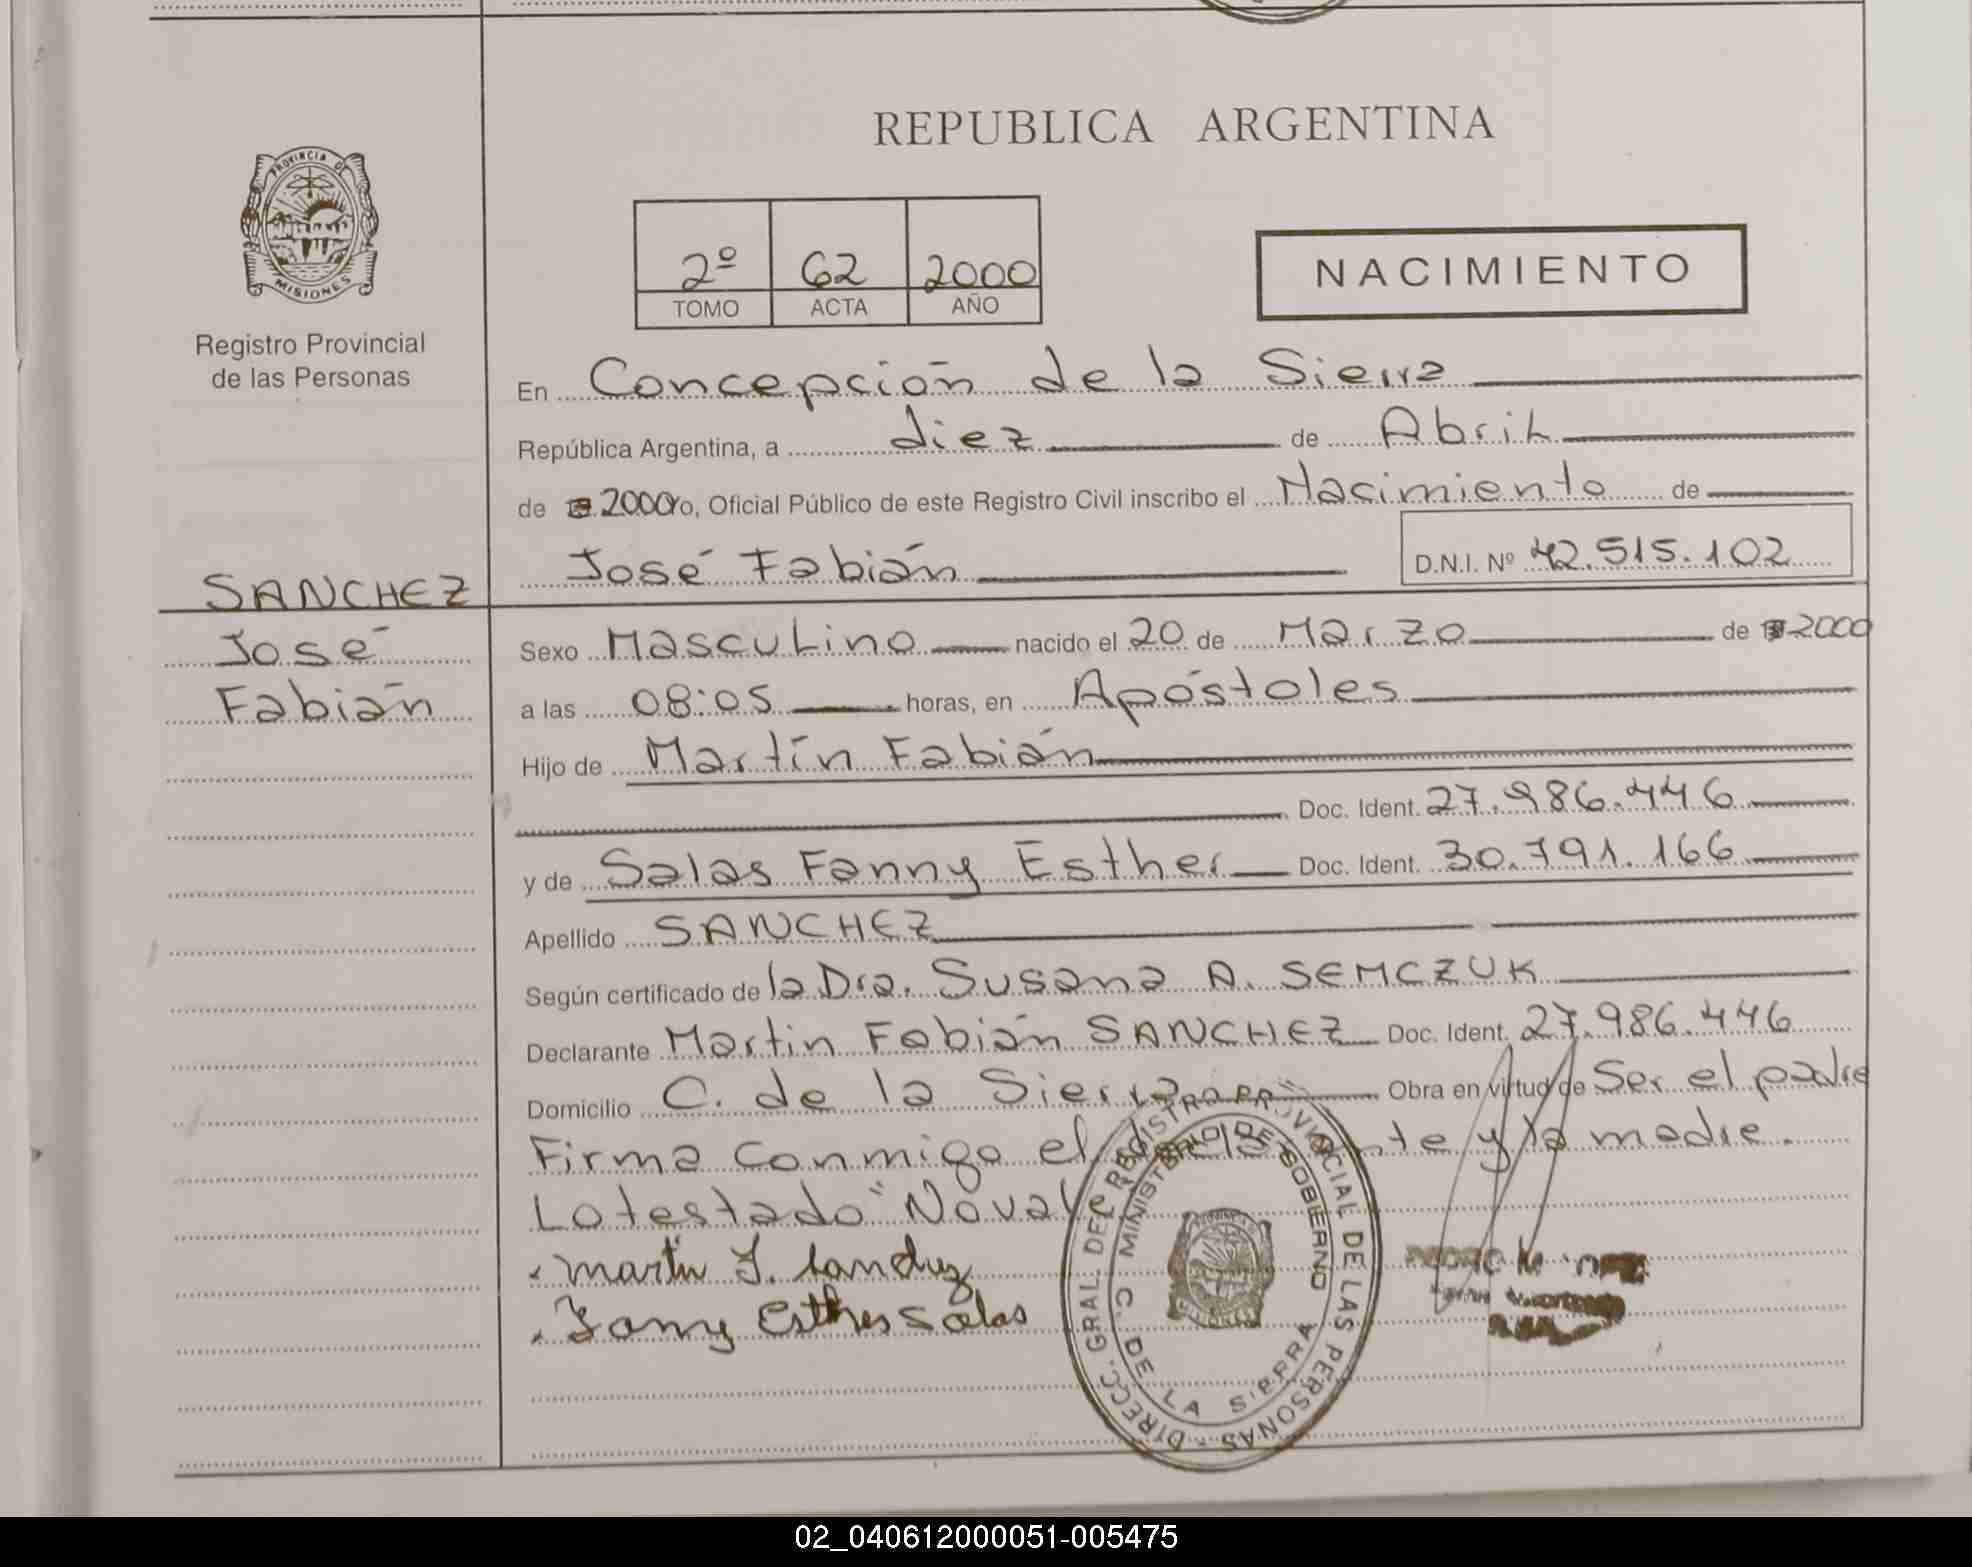 REPUBLICA ARGENTINA
PROVINCIA DE
MISIONES
Registro Provincial
de las Personas
2º 62 2000
TOMO ACTA AÑO
NACIMIENTO
En Concepción de la Sierra
República Argentina, a diez de Abril
de 2000 yo, Oficial Público de este Registro Civil inscribo el Nacimiento de
José Fabián D.N.I. Nº 42.515.102
SANCHEZ
José
Fabián
Sexo Masculino nacido el 20 de Marzo de 2000
a las 08:05 horas, en Apóstoles
Hijo de Martín Fabián
Doc. Ident. 27.986.446
y de Salas Fanny Esther Doc. Ident. 30.791.166
Apellido SANCHEZ
Según certificado de la Dra. Susana A. SEMCZUK
Declarante Martin Fabián SANCHEZ Doc. Ident. 27.986.446
Domicilio C. de la Sierra Obra en virtud de Ser el padre
Firma conmigo el declarante y la madre.
Lotestado "No vale
Martin F. Sanchez
Fanny Esther Salas
DIRECC. GRAL. DEL REGISTRO PROVINCIAL DE LAS PERSONAS -
MINISTERIO DE GOBIERNO
C. DE LA SIERRA
02_040612000051-005475